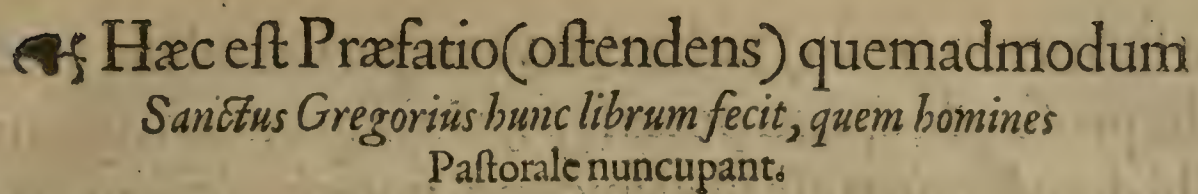 ☙ Hæc eſt Præfatio(oſtendens) quemadmodum
Sanctus Gregorius hunc librum fecit, quem homines
Paſtorale nuncupant.